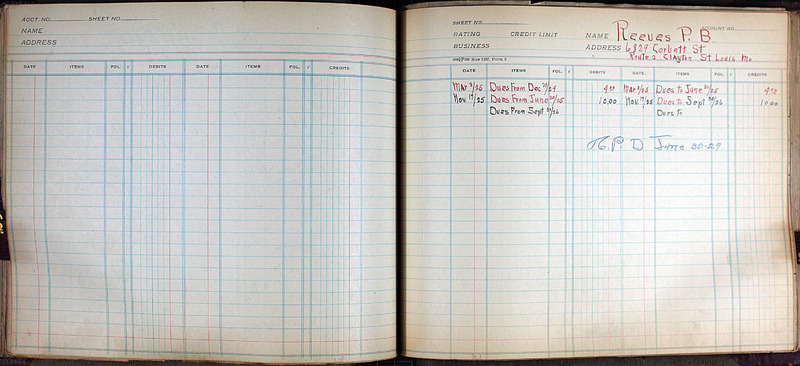 ACCT. NO. SHEET NO.
NAME
ADDRESS
DATE ITEMS FOL. √ DEBITS DATE ITEMS FOL. √ CREDITS
SHEET NO. ACCOUNT NO.
RATING CREDIT LIMIT NAME Reeves P. B.
BUSINESS ADDRESS 6829 Corbett St
Route 2 Clayton St Louis Mo
DATE ITEMS FOL. √ DEBITS DATE ITEMS FOL. √ CREDITS
Mar 9/25 Dues From Dec /24 Mar 9/25 Dues to June 30/25
Nov 17/25 Dues From June 30/25 10.00 Nov 17/25 Dues to Sept 30/26 10.00
Dues From Sept 30/26 Dues To
P. D June 30-27